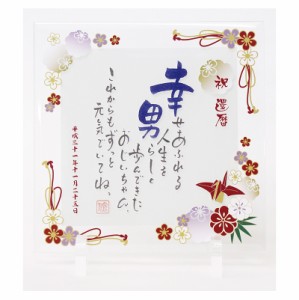 祝還暦
幸せあふれる
人生を
男らしく
歩んできた
おじいちゃん、
これからもずっと
元気でいてね。
平成三十一年十一月二十五日